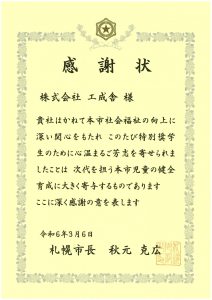 感謝状
株式会社 工成舎 様
貴社はかねて本市社会福祉の向上に
深い関心をもたれ このたび特別奨学
生のために心温まるご芳志を寄せられ
ましたことは 次代を担う本市児童の健全
育成に大きく寄与するものであります
ここに深く感謝の意を表します
令和6年3月6日
札幌市長 秋元 克広